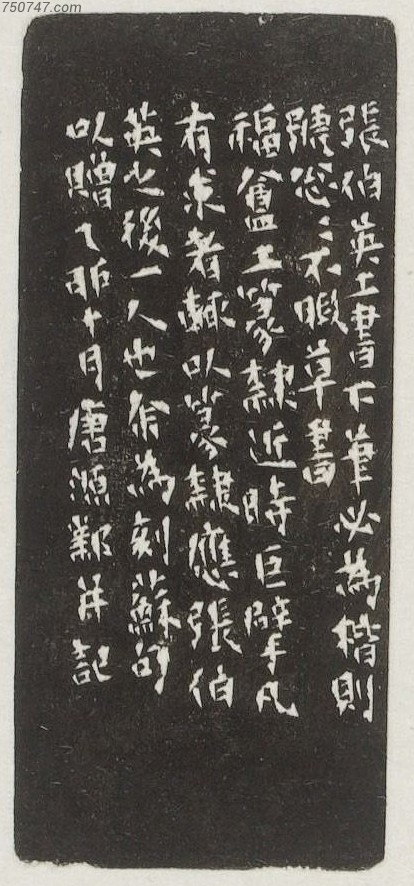 750747.com
張伯英工書下筆必為楷則
號忽〻不暇草書
福盦工篆隸近時巨擘凡
有求者輒以篆隸應張伯
英之後一人也俗為刻蘇句
以贈乙卯十月唐源鄴并記